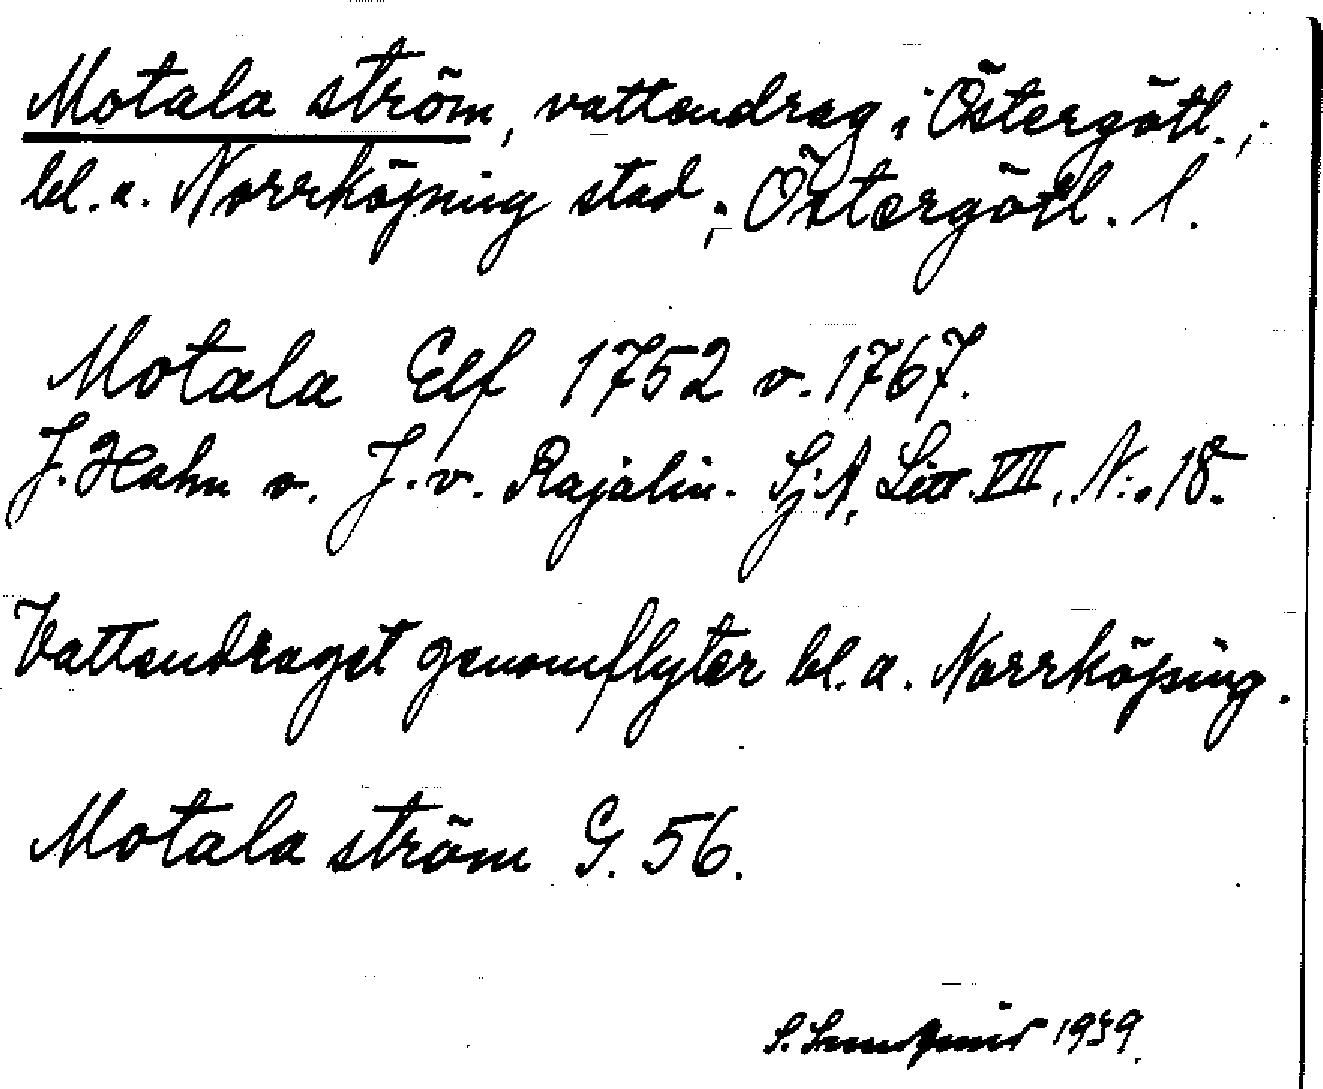 Motala ström, vattendrag i Östergötl.,
bl.a. Norrköping stad; Östergötl. l.
Motala Elf 1752 o. 1767.
J. Hahn o. J. v. Rajalin. SjA, Litt. VII, N:o 18.
Vattendraget genomflyter bl.a. Norrköping.
Motala ström G. 56.
S. 1939.